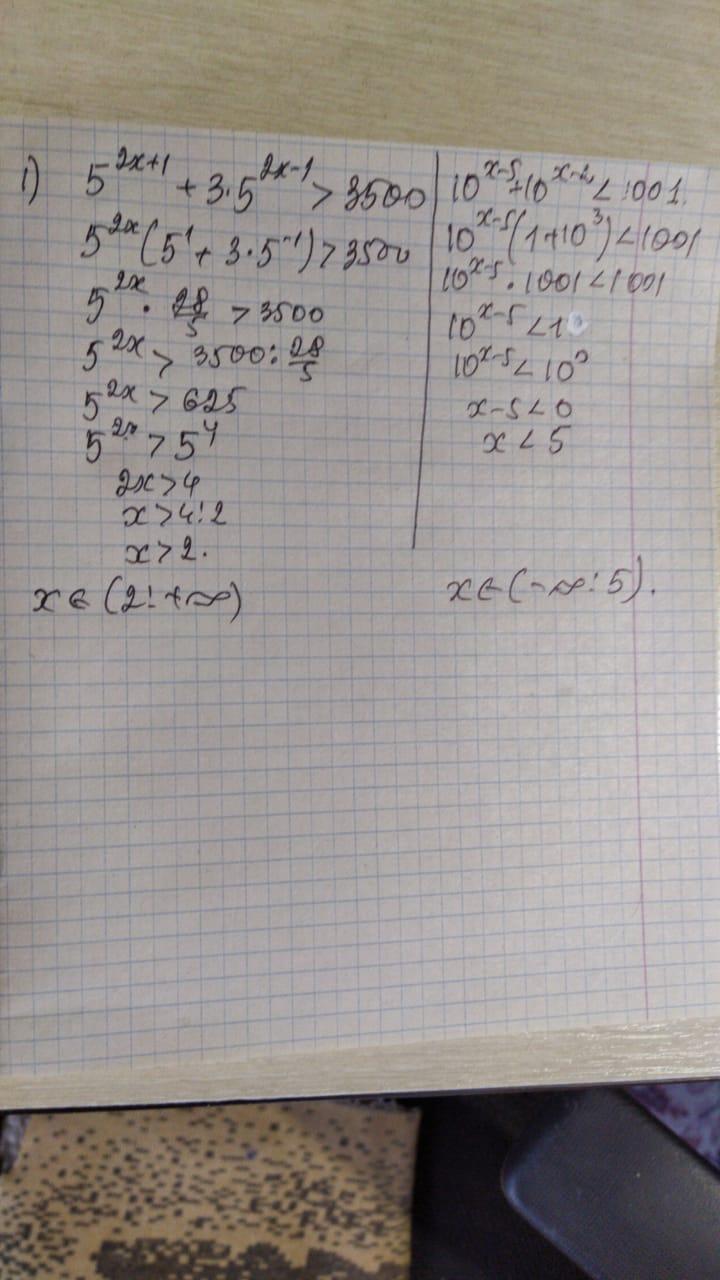 1) 5^{2x+1} + 3·5^{2x-1} > 3500
5^{2x}(5^1 + 3·5^{-1}) > 3500
5^{2x} · 28/5 > 3500
5^{2x} > 3500 : 28/5
5^{2x} > 625
5^{2x} > 5^4
2x > 4
x > 4:2
x > 2.
x ∈ (2; +∞)
10^{x-5} + 10^{x-2} < 1001.
10^{x-5}(1+10^3) < 1001
10^{x-5} · 1001 < 1001
10^{x-5} < 1
10^{x-5} < 10^0
x-5 < 0
x < 5
x ∈ (-∞; 5).